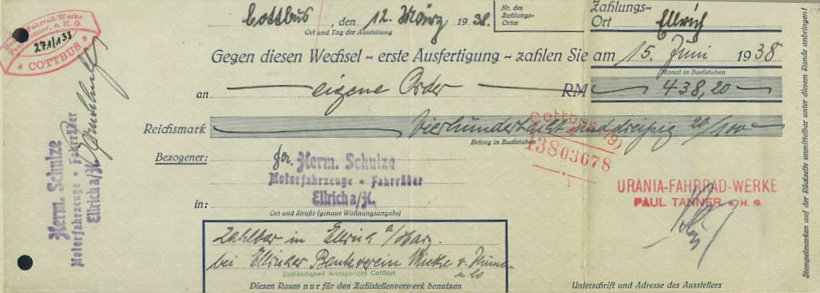 Cottbus, den 12. März 1938.
Ort und Tag der Ausstellung
Nr. des Zahlungs-Ortes
Zahlungs-Ort Ellrich
Gegen diesen Wechsel - erste Ausfertigung - zahlen Sie am 15. Juni 1938
Monat in Buchstaben
an eigene Order RM 438,20
Reichsmark vierhundertachtunddreißig 20/100
Betrag in Buchstaben
Cottbus
13803078
Bezogener: Herm. Schulze
Motorfahrzeuge - Fahrräder
in: Ellrich a/H.
Ort und Straße (genaue Wohnungsangabe)
Zahlbar in Ellrich a/Harz
bei Ellricher Bankverein
Zuständigkeit Amtsgericht Cottbus
Diesen Raum nur für den Zahlstellenvermerk benutzen
URANIA-FAHRRAD-WERKE
PAUL TANNER o. H. G.
Unterschrift und Adresse des Ausstellers
Stempelmarken auf der Rückseite unmittelbar unter diesem Rande anbringen!
Fahrrad-Werke
Tanner, o. H. G.
COTTBUS
Herm. Schulze
Motorfahrzeuge - Fahrräder
Ellrich a/H.